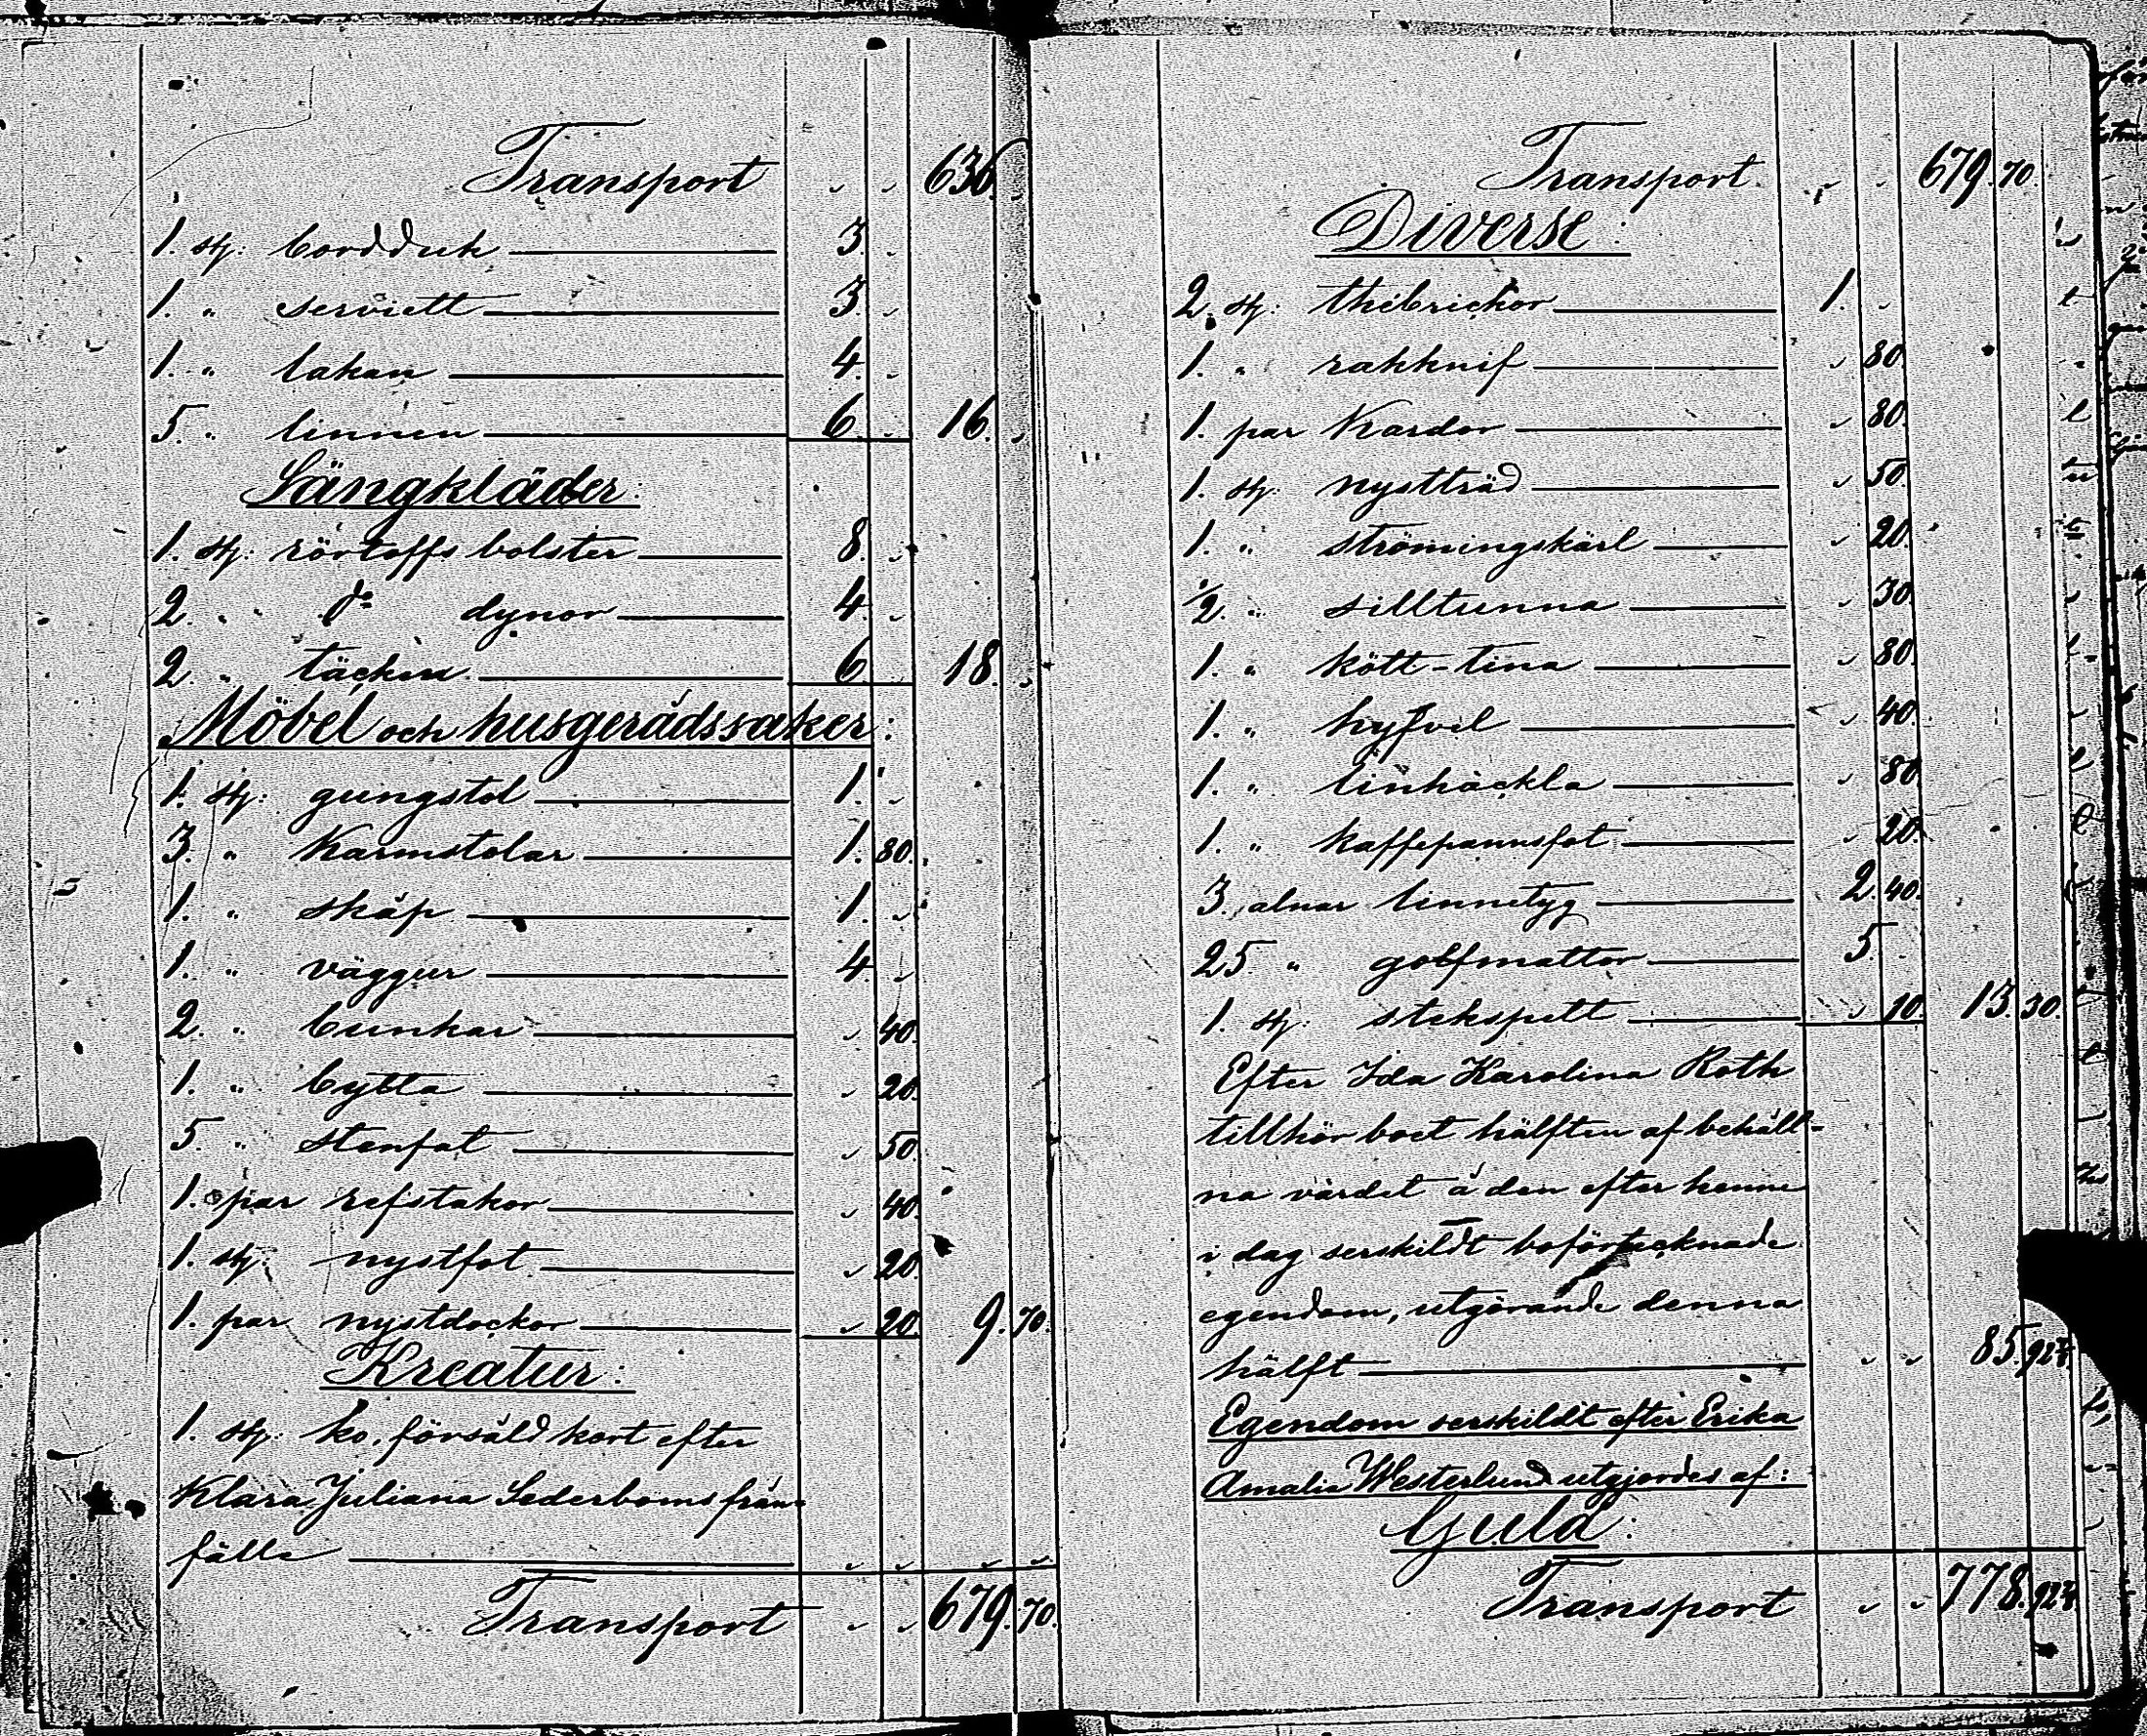 Transport " " 636. "
1. stj: bordduk 3. "
1. " serviett 3. "
1. " lakan 4. "
5. " linnen 6. " 16. "
Sängkläder:
1. stj: rörtoffs bolster 8. "
2. " d:o dynor 4. "
2. " täcken 6 " 18. "
Möbel och husgerådssaker:
1. stj: gungstol 1. "
3. " Karmstolar 1. 80.
1. " skåp 1. "
1. " väggur 4. "
2. " bunkar " 40.
1. " bytta " 20.
5. " stenfat " 50.
1. par refstakor " 40.
1. stj: nystfot " 20.
1. par nystdockor " 20. 9. 70.
Kreatur:
1. stj: ko, försåld kort efter
Klara Juliana Sederboms från-
fälle " " " "
Transport " " 679. 70.
Transport " " 679. 70.
Diverse:
2. stj: thebrickor 1. "
1. " rakknif " 80.
1. par Kardor " 80.
1. stj: nystträd " 50.
1. " strömingskärl " 20.
1/2. " silltunna " 30
1. " kött-tina " 80.
1. " hyfvel " 40
1. " linhäckla " 80
1. " kaffepannsfot " 20.
3. alnar linnetyg 2. 40.
25 " golfmattor 5. "
1. stj: stekspett " 10. 13. 30.
Efter Ida Karolina Roth
tillhör boet hälften af behåll-
na värdet å den efter henne
i dag serskildt boförtecknade
egendom, utgörande denna
hälft " " 85. 92 1/2
Egendom serskildt efter Erika
Amalia Westerlund utgjordes af:
Guld:
Transport " " 778. 92 1/2